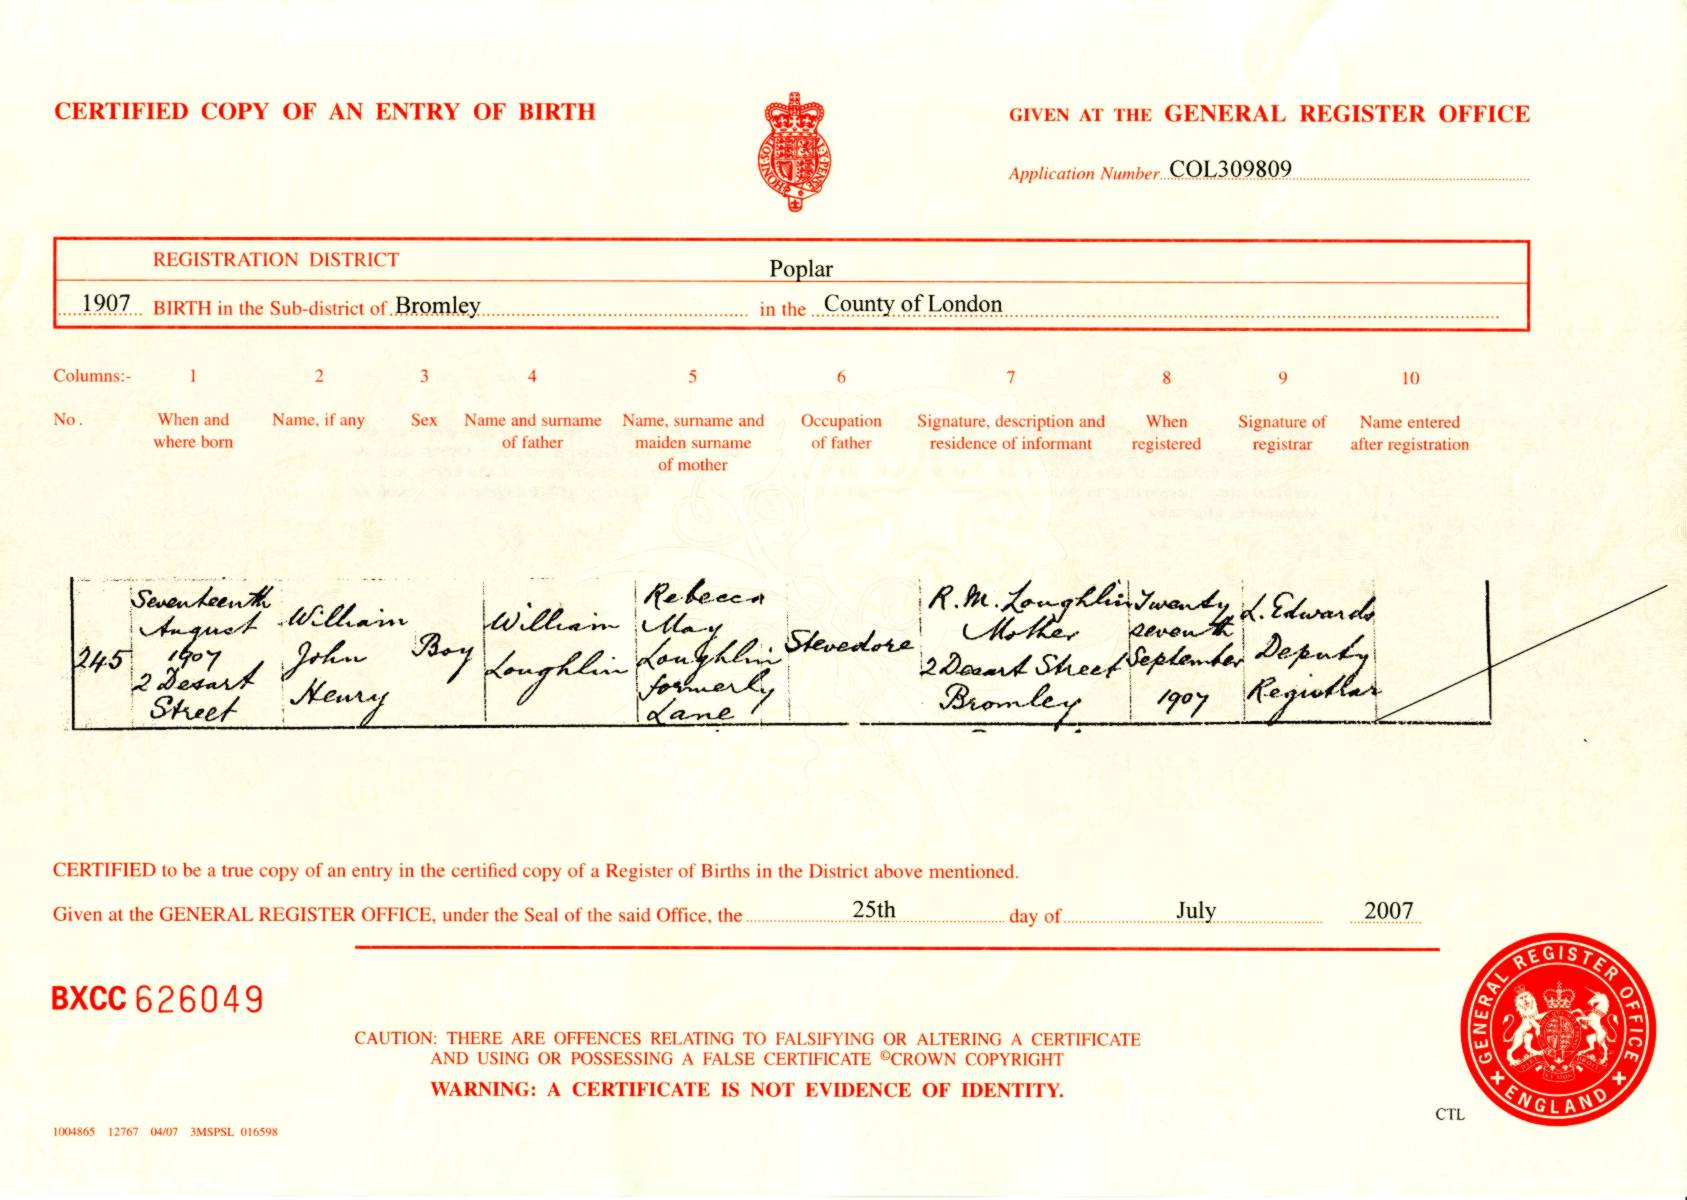 CERTIFIED COPY OF AN ENTRY OF BIRTH
GIVEN AT THE GENERAL REGISTER OFFICE
Application Number COL309809
REGISTRATION DISTRICT Poplar
1907 BIRTH in the Sub-district of Bromley in the County of London
Columns:- 1 2 3 4 5 6 7 8 9 10
No. When and where born Name, if any Sex Name and surname of father Name, surname and maiden surname of mother Occupation of father Signature, description and residence of informant When registered Signature of registrar Name entered after registration
245
Seventeenth
August
1907
2 Desart
Street
William
John
Henry
Boy
William
Loughlin
Rebecca
May
Loughlin
formerly
Lane
Stevedore
R. M. Loughlin
Mother
2 Desart Street
Bromley
Twenty
seventh
September
1907
L. Edwards
Deputy
Registrar
CERTIFIED to be a true copy of an entry in the certified copy of a Register of Births in the District above mentioned.
Given at the GENERAL REGISTER OFFICE, under the Seal of the said Office, the 25th day of July 2007
BXCC 626049
CAUTION: THERE ARE OFFENCES RELATING TO FALSIFYING OR ALTERING A CERTIFICATE
AND USING OR POSSESSING A FALSE CERTIFICATE ©CROWN COPYRIGHT
WARNING: A CERTIFICATE IS NOT EVIDENCE OF IDENTITY.
GENERAL REGISTER OFFICE
ENGLAND
CTL
1004865 12767 04/07 3MSPSL 016598